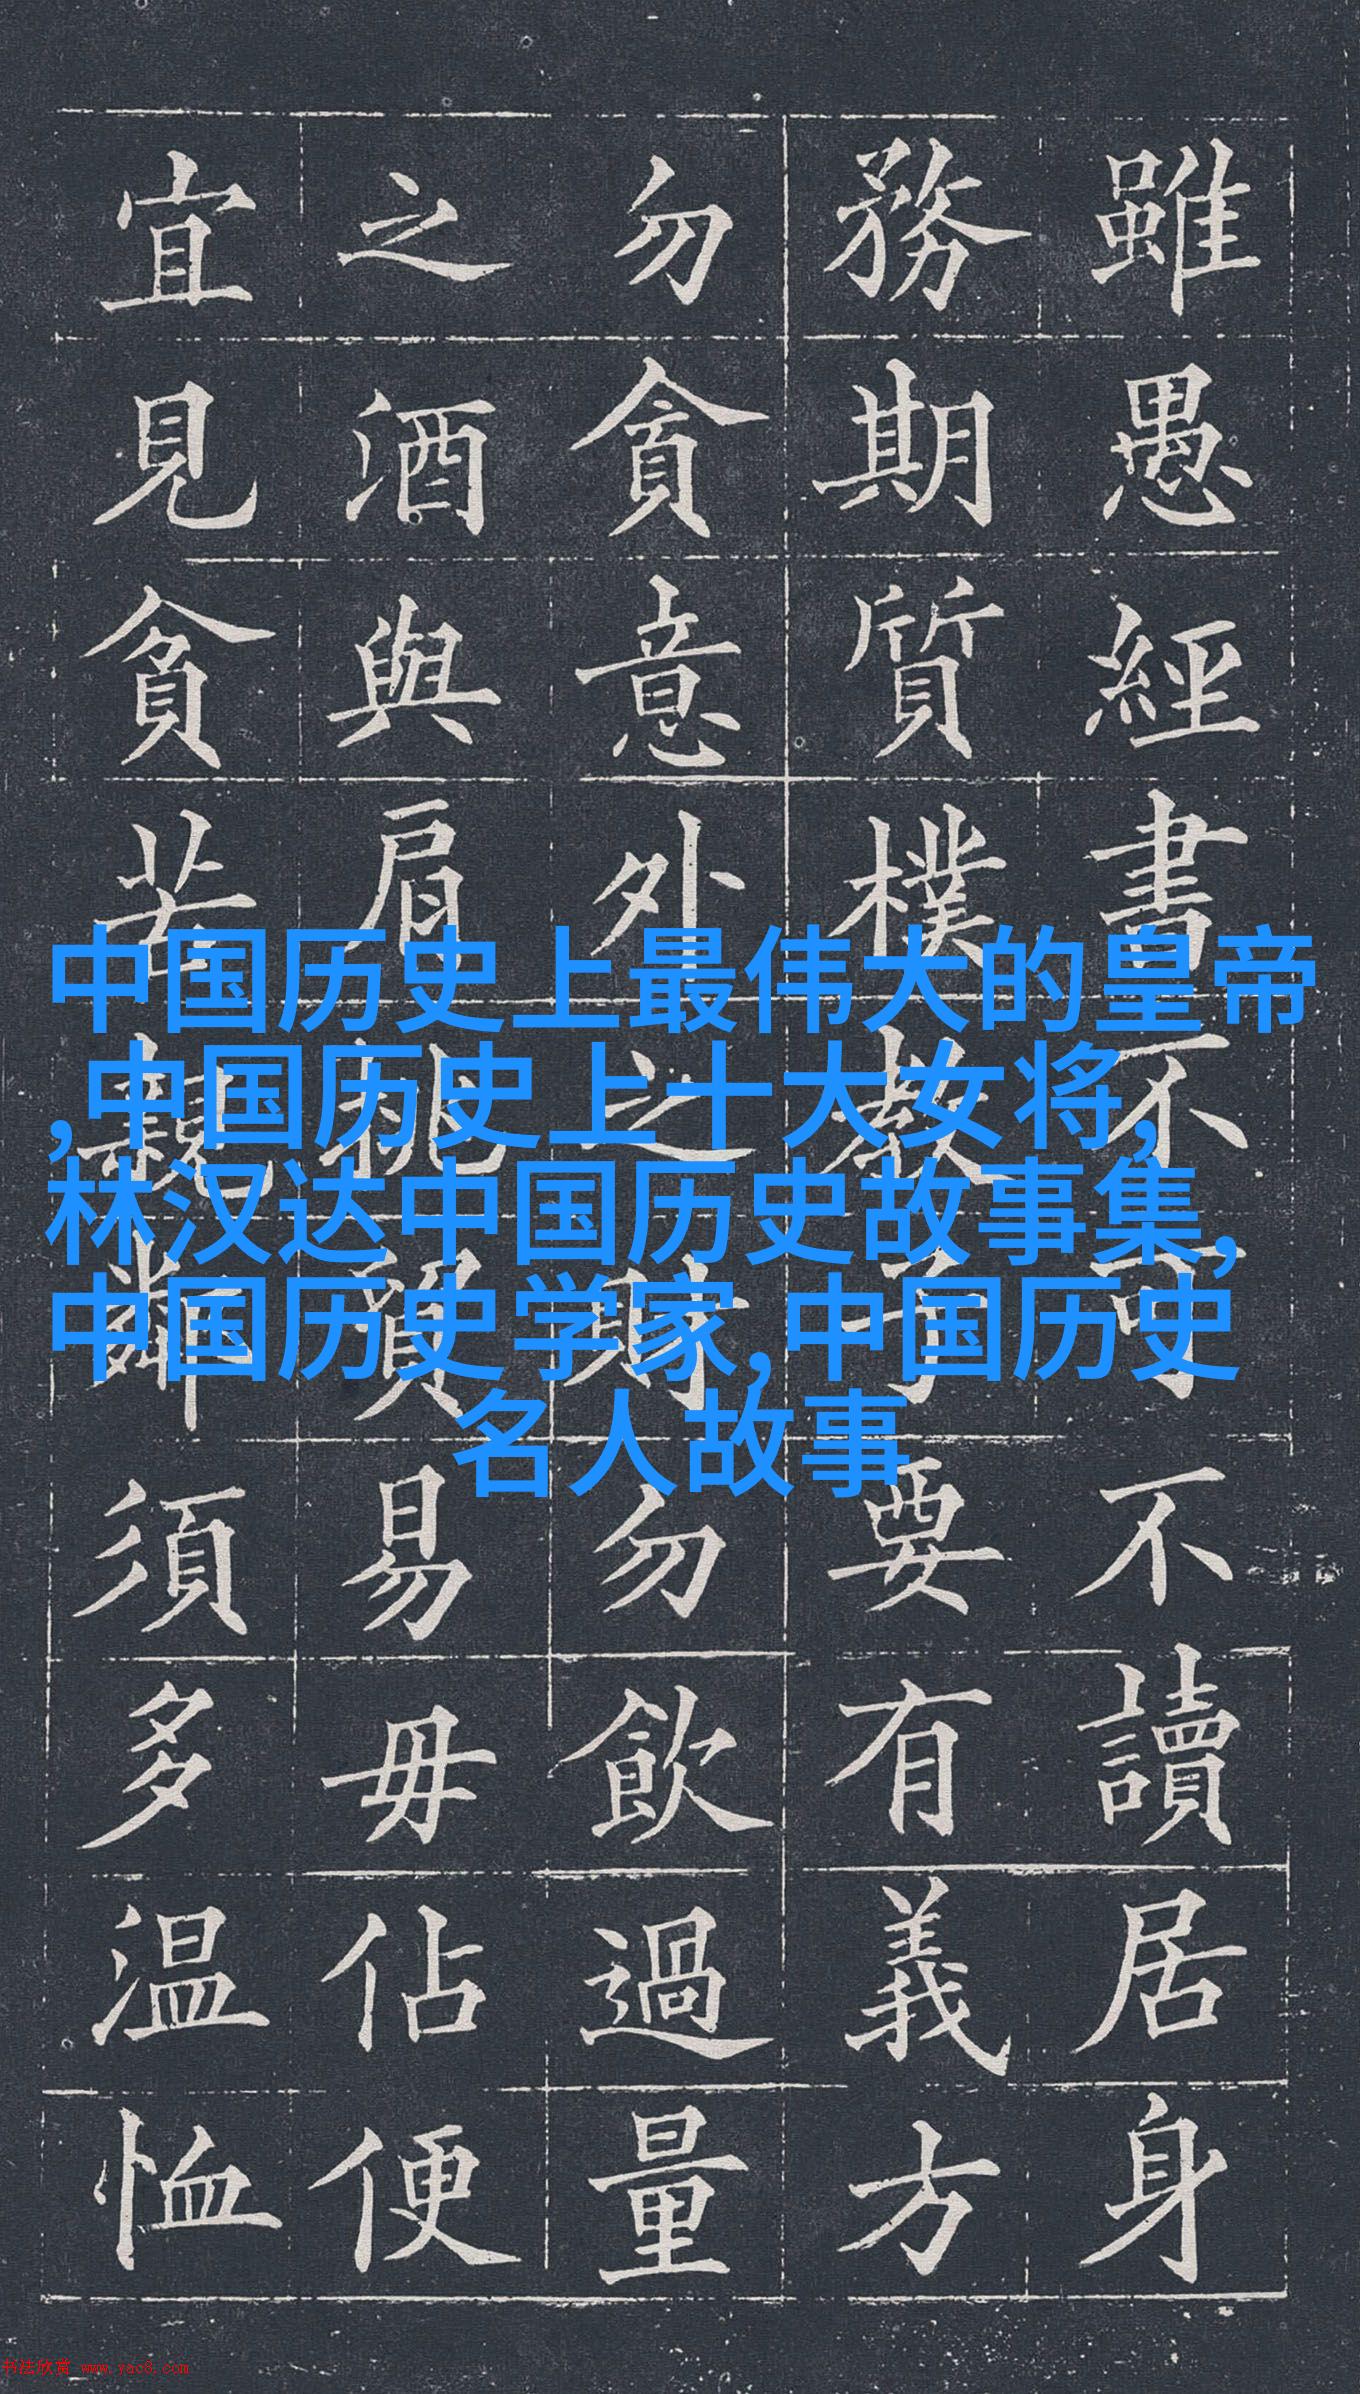 雖愚經書不可不讀居身
務期質樸教子要有義方
勿貪意外之財勿飲過量
之酒與肩挑貿易毋佔便
宜見貧苦親鄰須多温恤
中国历史上最伟大的皇帝
,中国历史上十大女将,
林汉达中国历史故事集,
中国历史学家,中国历史
名人故事
书法欣赏 www.yac8.com